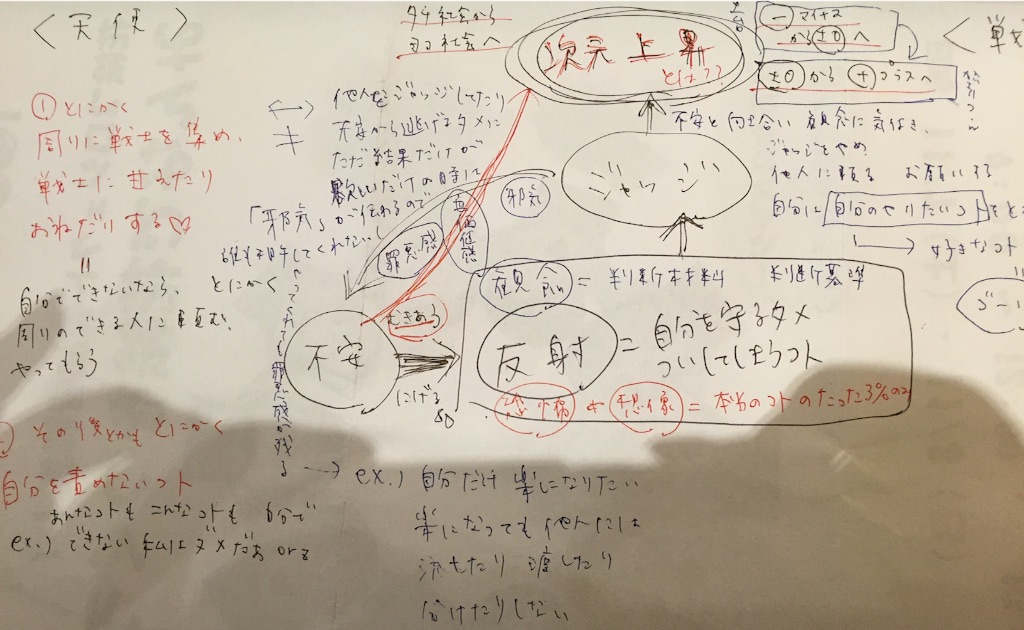 〈天使〉
① とにかく
周りに戦士を集め、
戦士に甘えたり
おねだりする♡
||
自分でできないなら、とにかく
周りのできる人に頼む、
やってもらう
その後とかもとにかく
自分を責めないコト
あんなコトもこんなコトも自分で
ex.) できない私はダメだぁ orz
タテ社会から
ヨコ社会へ
次元上昇
とは??
⊖ マイナス
から±0へ
±0から⊕プラスへ
〈戦
⟷
≠
他人をジャッジしてたり
不安から逃げるタメに
ただ結果だけが
欲しいだけの時は
「邪気」が伝わるので
誰も相手してくれないし
やってくれても罪悪感が残る
邪気
罪悪感
価値感
ジャッジ
不安と向き合い 観念に気付き、
ジャッジをやめ
他人に頼る お願いする
自分に自分のやりたいコトをと
→ 好きなコト
ゴー
不安
むきあう
にげる
観念 = 判断材料 判断基準
反射 = 自分を守るタメ
ついしてしまうコト
想像 = 本当のコトのたった3%の
→ ex.) 自分だけ楽になりたい
楽になっても他人には
流したり 渡したり
分けたりしない